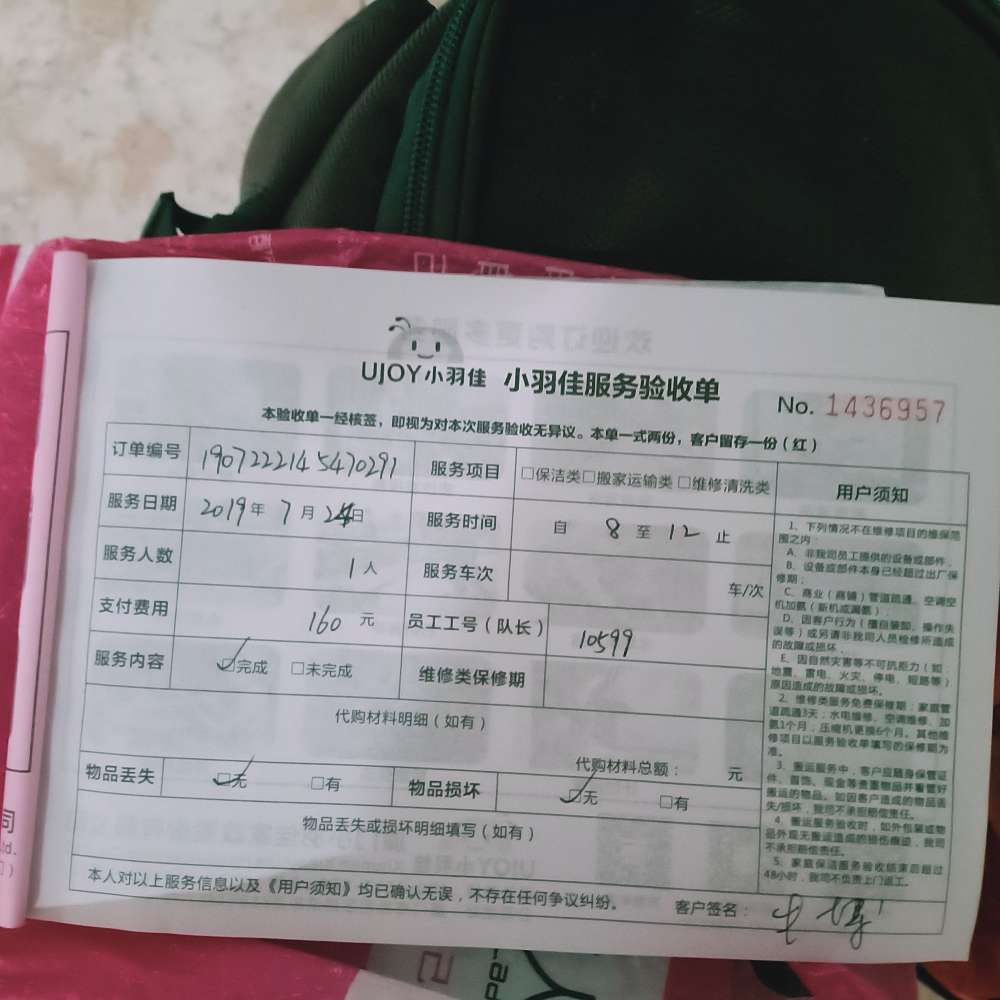 UJOY小羽佳 小羽佳服务验收单
No. 1436957
本验收单一经核签，即视为对本次服务验收无异议。本单一式两份，客户留存一份（红）
订单编号 1907222145470291 服务项目 □保洁类□搬家运输类□维修清洗类
服务日期 2019年 7月 24日 服务时间 自 8 至 12 止
服务人数 1人 服务车次 车/次
支付费用 160 元 员工工号（队长） 10599
服务内容 ☑完成 □未完成 维修类保修期
代购材料明细（如有）
代购材料总额： 元
物品丢失 ☑无 □有 物品损坏 ☑无 □有
物品丢失或损坏明细填写（如有）
本人对以上服务信息以及《用户须知》均已确认无误，不存在任何争议纠纷。 客户签名：
用户须知
1、下列情况不在维修项目的维保范
围之内：
A、非我司员工提供的设备或部件，
B、设备或部件本身已经超过出厂保
修期；
C、商业（商铺）管道疏通、空调空
机加氨（新机或漏氨）
D、因客户行为（擅自装卸、操作失
误等）或另请非我司人员检修所造成
的故障或损坏，
E、因自然灾害等不可抗拒力（如：
地震、雷电、火灾、停电、短路等）
原因造成的故障或损坏。
2、维修类服务免费保修期：家庭管
道疏通3天；水电维修、空调维修、加
氨1个月；压缩机更换6个月。其他维
修项目以服务验收单填写的保修期为
准。
3、搬运服务中，客户应随身保管证
件、首饰、现金等贵重物品并看管好
搬运的物品。如因客户造成的物品丢
失/损坏，我司不承担赔偿责任。
4、搬运服务验收时，如外包装或物
品外观无搬运造成的损伤痕迹，我司
不承担赔偿责任。
5、家庭保洁服务验收结束后超过
48小时，我司不负责上门返工。
司
td.